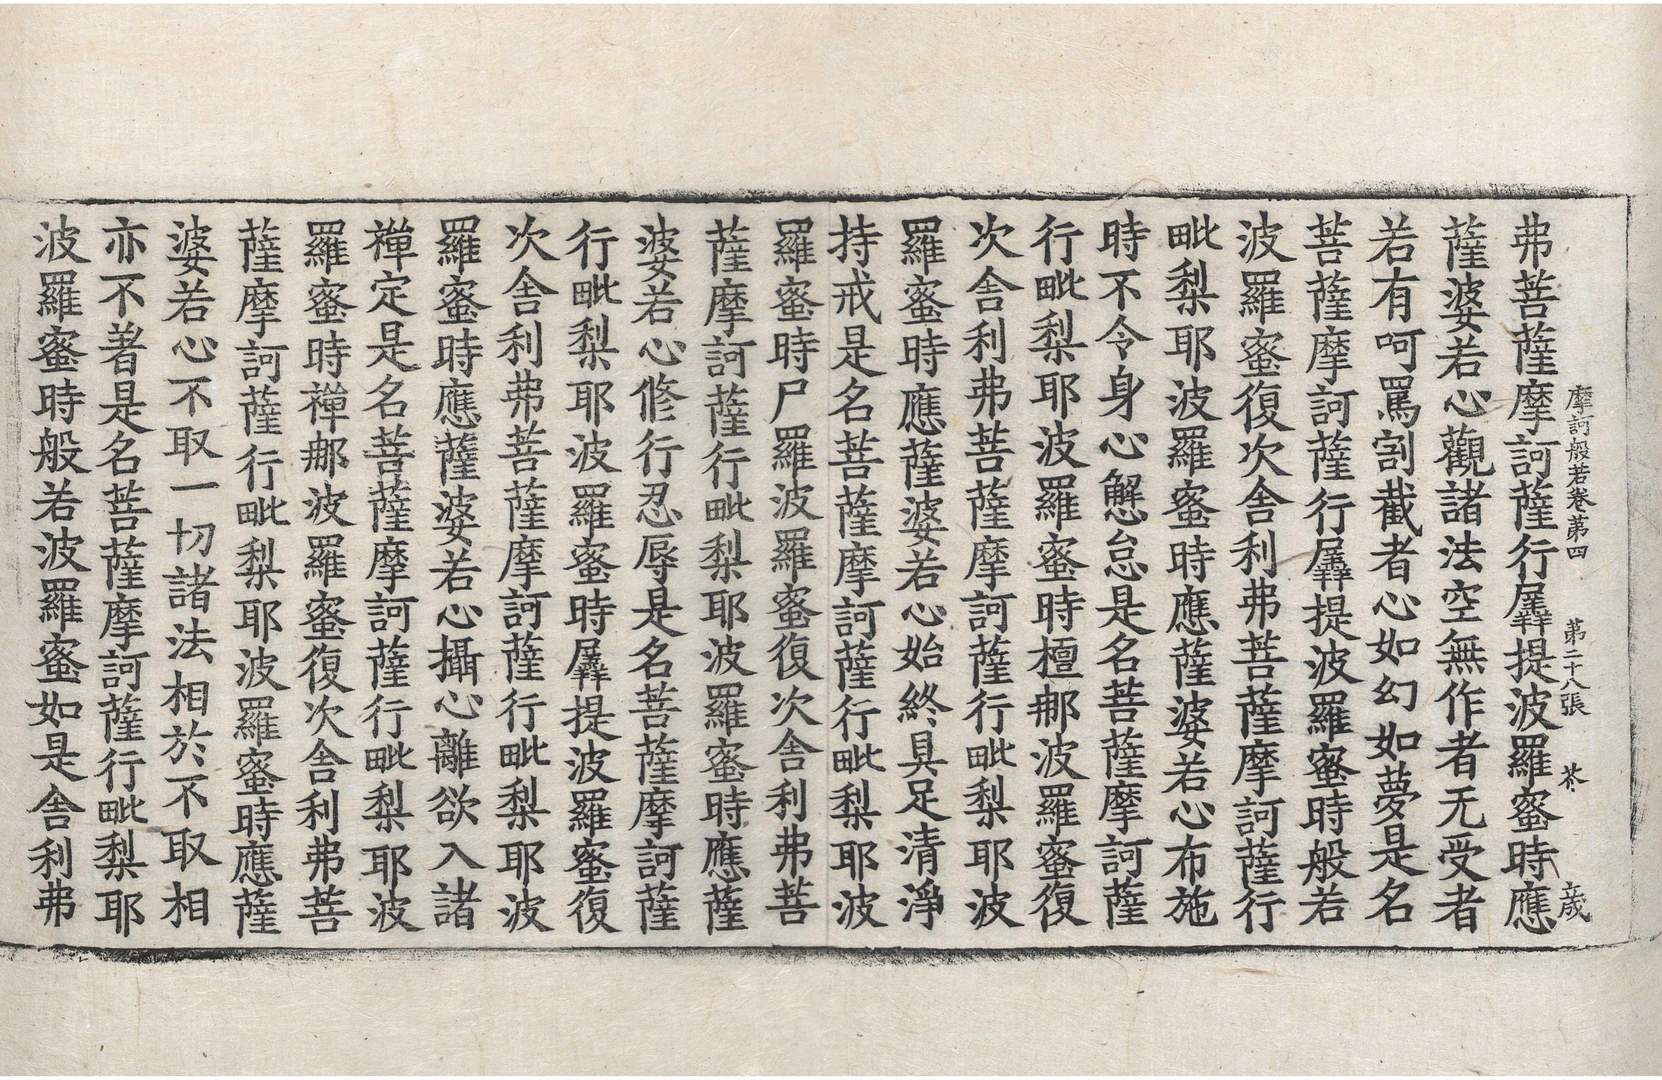 摩訶般若卷第四 第二十八張 芥 歲
弗菩薩摩訶薩行羼提波羅蜜時應
薩婆若心觀諸法空無作者无受者
若有呵罵割截者心如幻如夢是名
菩薩摩訶薩行羼提波羅蜜時般若
波羅蜜復次舍利弗菩薩摩訶薩行
毗梨耶波羅蜜時應薩婆若心布施
時不令身心懈怠是名菩薩摩訶薩
行毗梨耶波羅蜜時檀那波羅蜜復
次舍利弗菩薩摩訶薩行毗梨耶波
羅蜜時應薩婆若心始終具足清淨
持戒是名菩薩摩訶薩行毗梨耶波
羅蜜時尸羅波羅蜜復次舍利弗菩
薩摩訶薩行毗梨耶波羅蜜時應薩
婆若心修行忍辱是名菩薩摩訶薩
行毗梨耶波羅蜜時羼提波羅蜜復
次舍利弗菩薩摩訶薩行毗梨耶波
羅蜜時應薩婆若心攝心離欲入諸
禪定是名菩薩摩訶薩行毗梨耶波
羅蜜時禪那波羅蜜復次舍利弗菩
薩摩訶薩行毗梨耶波羅蜜時應薩
婆若心不取一切諸法相於不取相
亦不著是名菩薩摩訶薩行毗梨耶
波羅蜜時般若波羅蜜如是舍利弗